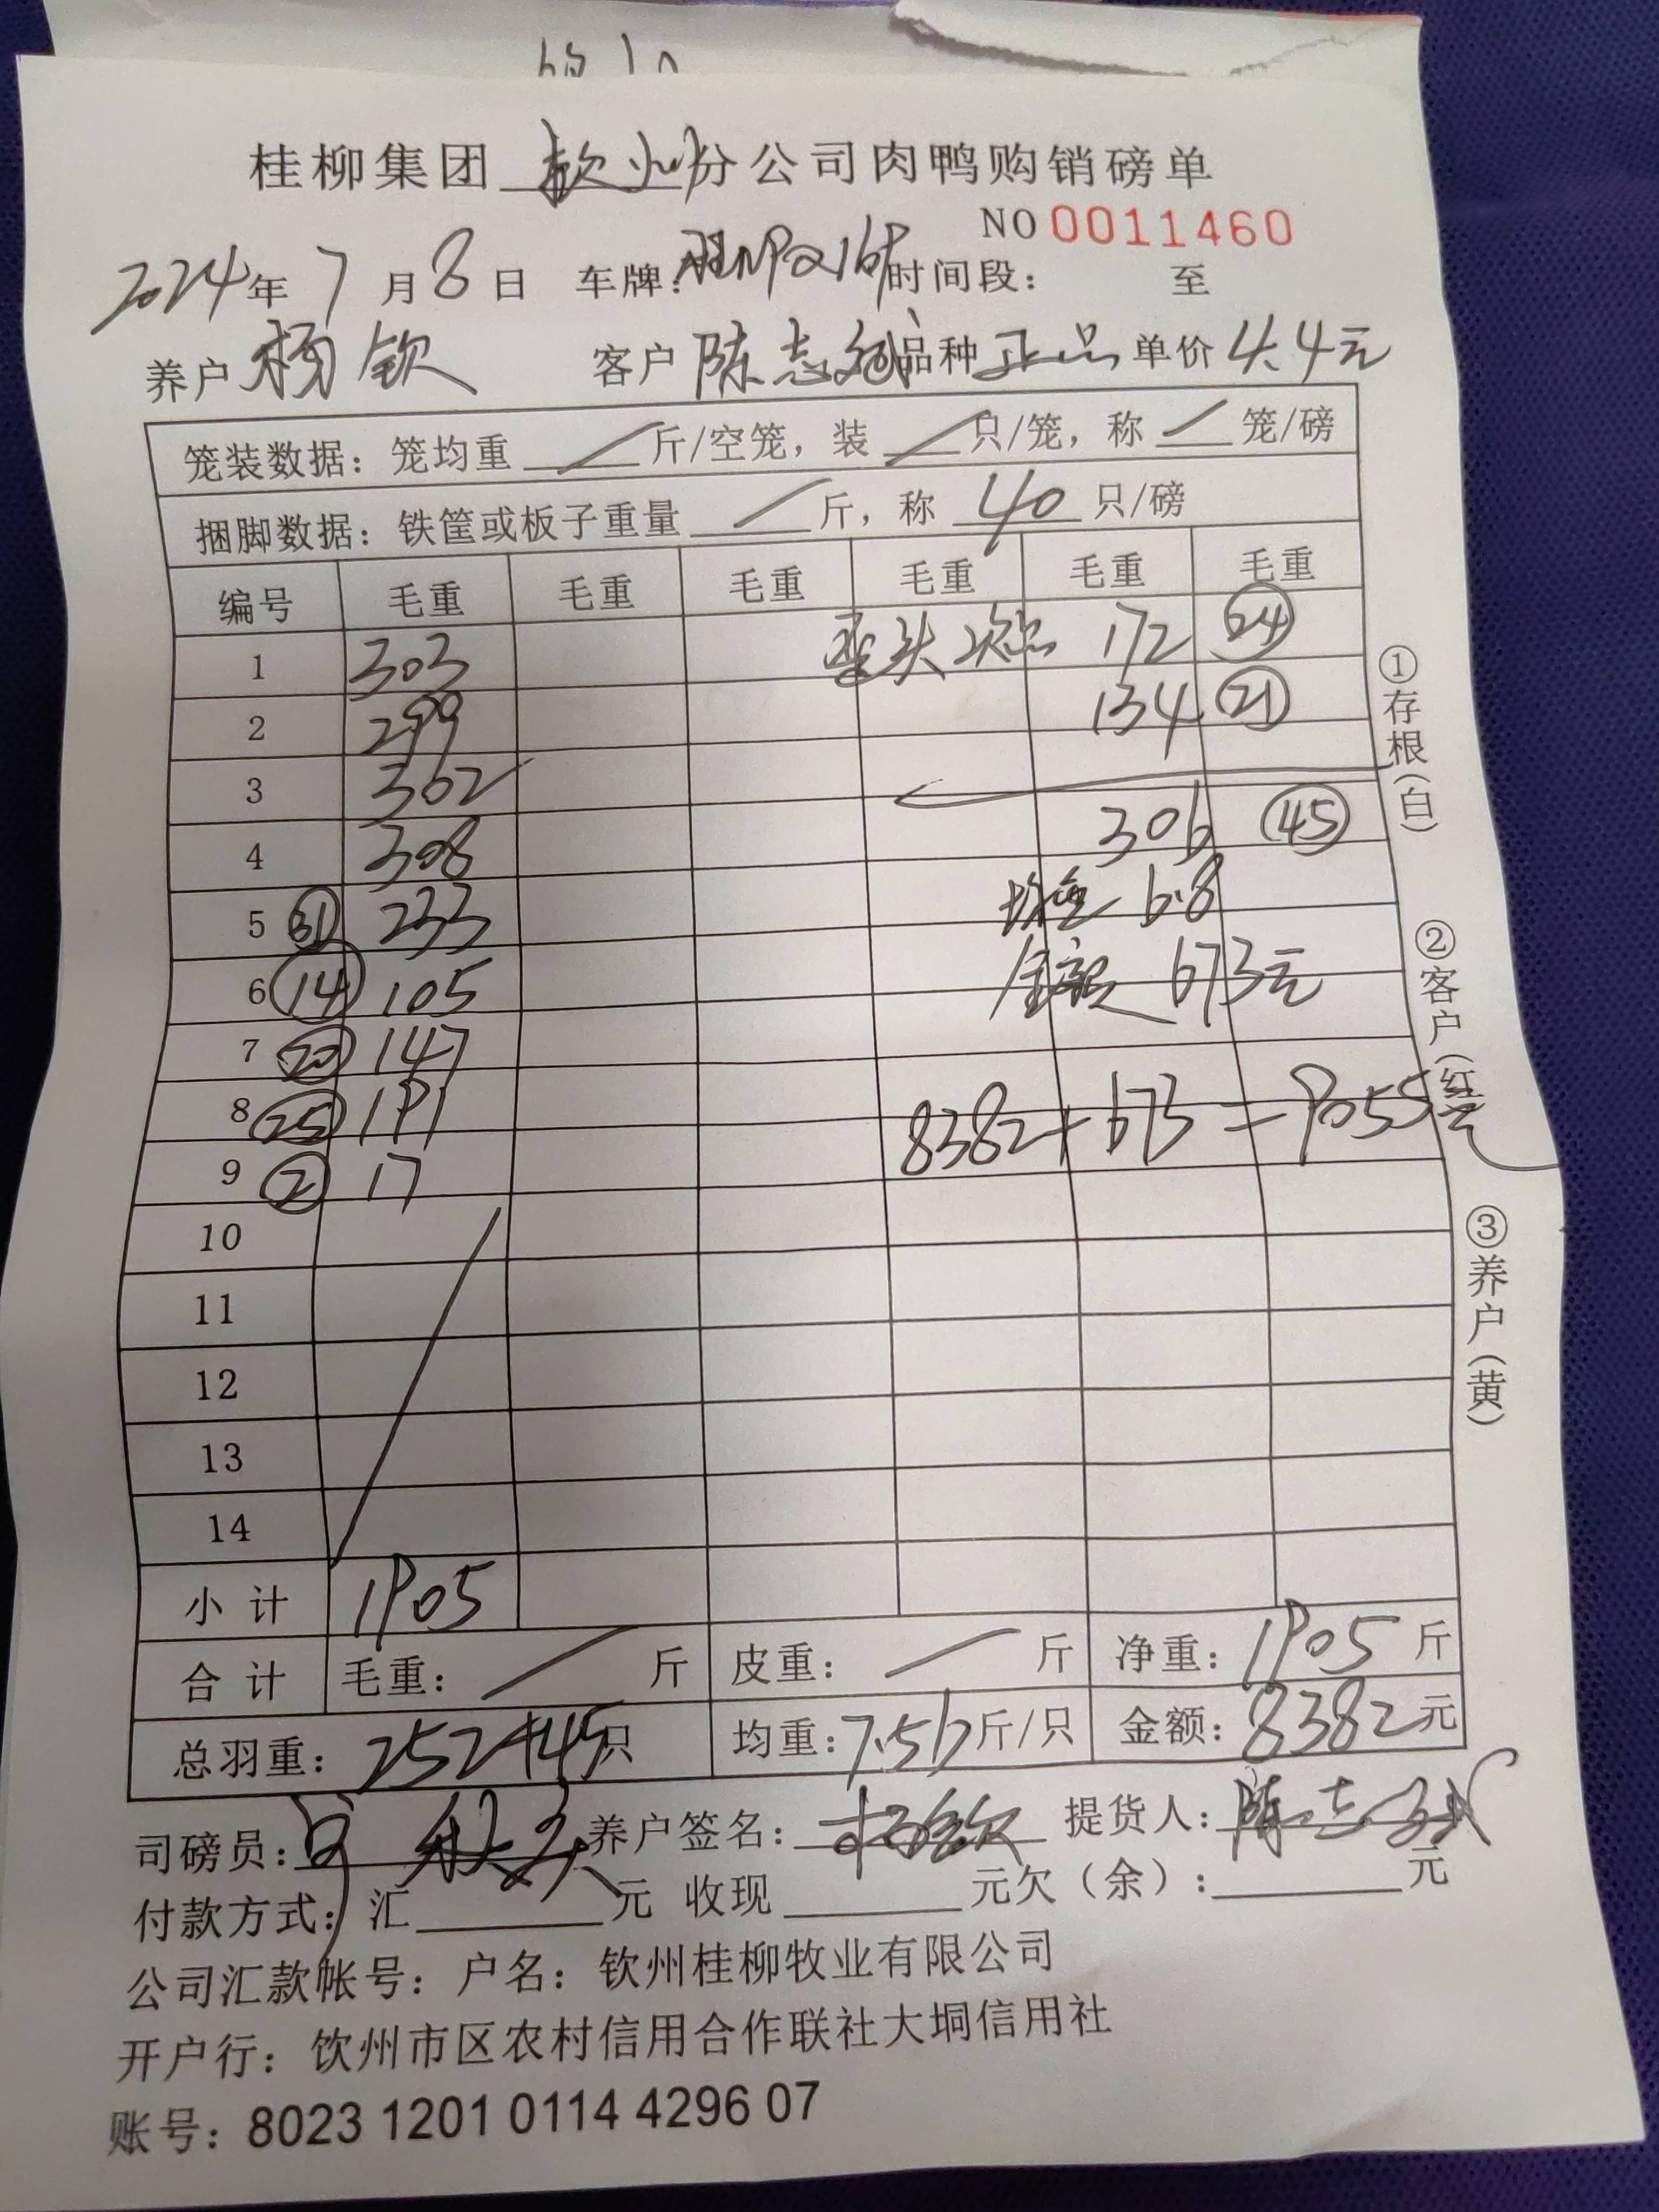 桂柳集团 钦州 分公司肉鸭购销磅单
NO 0011460
2024年 7 月 8 日 车牌: 时间段: 至
养户 杨钦 客户 陈志 品种 正品 单价 4.4元
笼装数据: 笼均重 / 斤/空笼, 装 / 只/笼, 称 / 笼/磅
捆脚数据: 铁筐或板子重量 / 斤, 称 40 只/磅
编号 毛重 毛重 毛重 毛重 毛重 毛重
1 303 歪头次品 172 24
2 299 134 21
3 302
4 308 306 45
5 31 233 均重 6.8
6 14 105 金额 673元
7 20 147
8 25 191 8382+673=9055元
9 2 17
10
11
12
13
14
小计 1905
合计 毛重: / 斤 皮重: / 斤 净重: 1905 斤
总羽重: 252+45只 均重: 7.56斤/只 金额: 8382元
司磅员: 养户签名: 杨钦 提货人: 陈志
付款方式: 汇 元 收现 元欠(余): 元
公司汇款帐号: 户名: 钦州桂柳牧业有限公司
开户行: 钦州市区农村信用合作联社大垌信用社
账号: 8023 1201 0114 4296 07
①存根(白)
②客户(红)
③养户(黄)